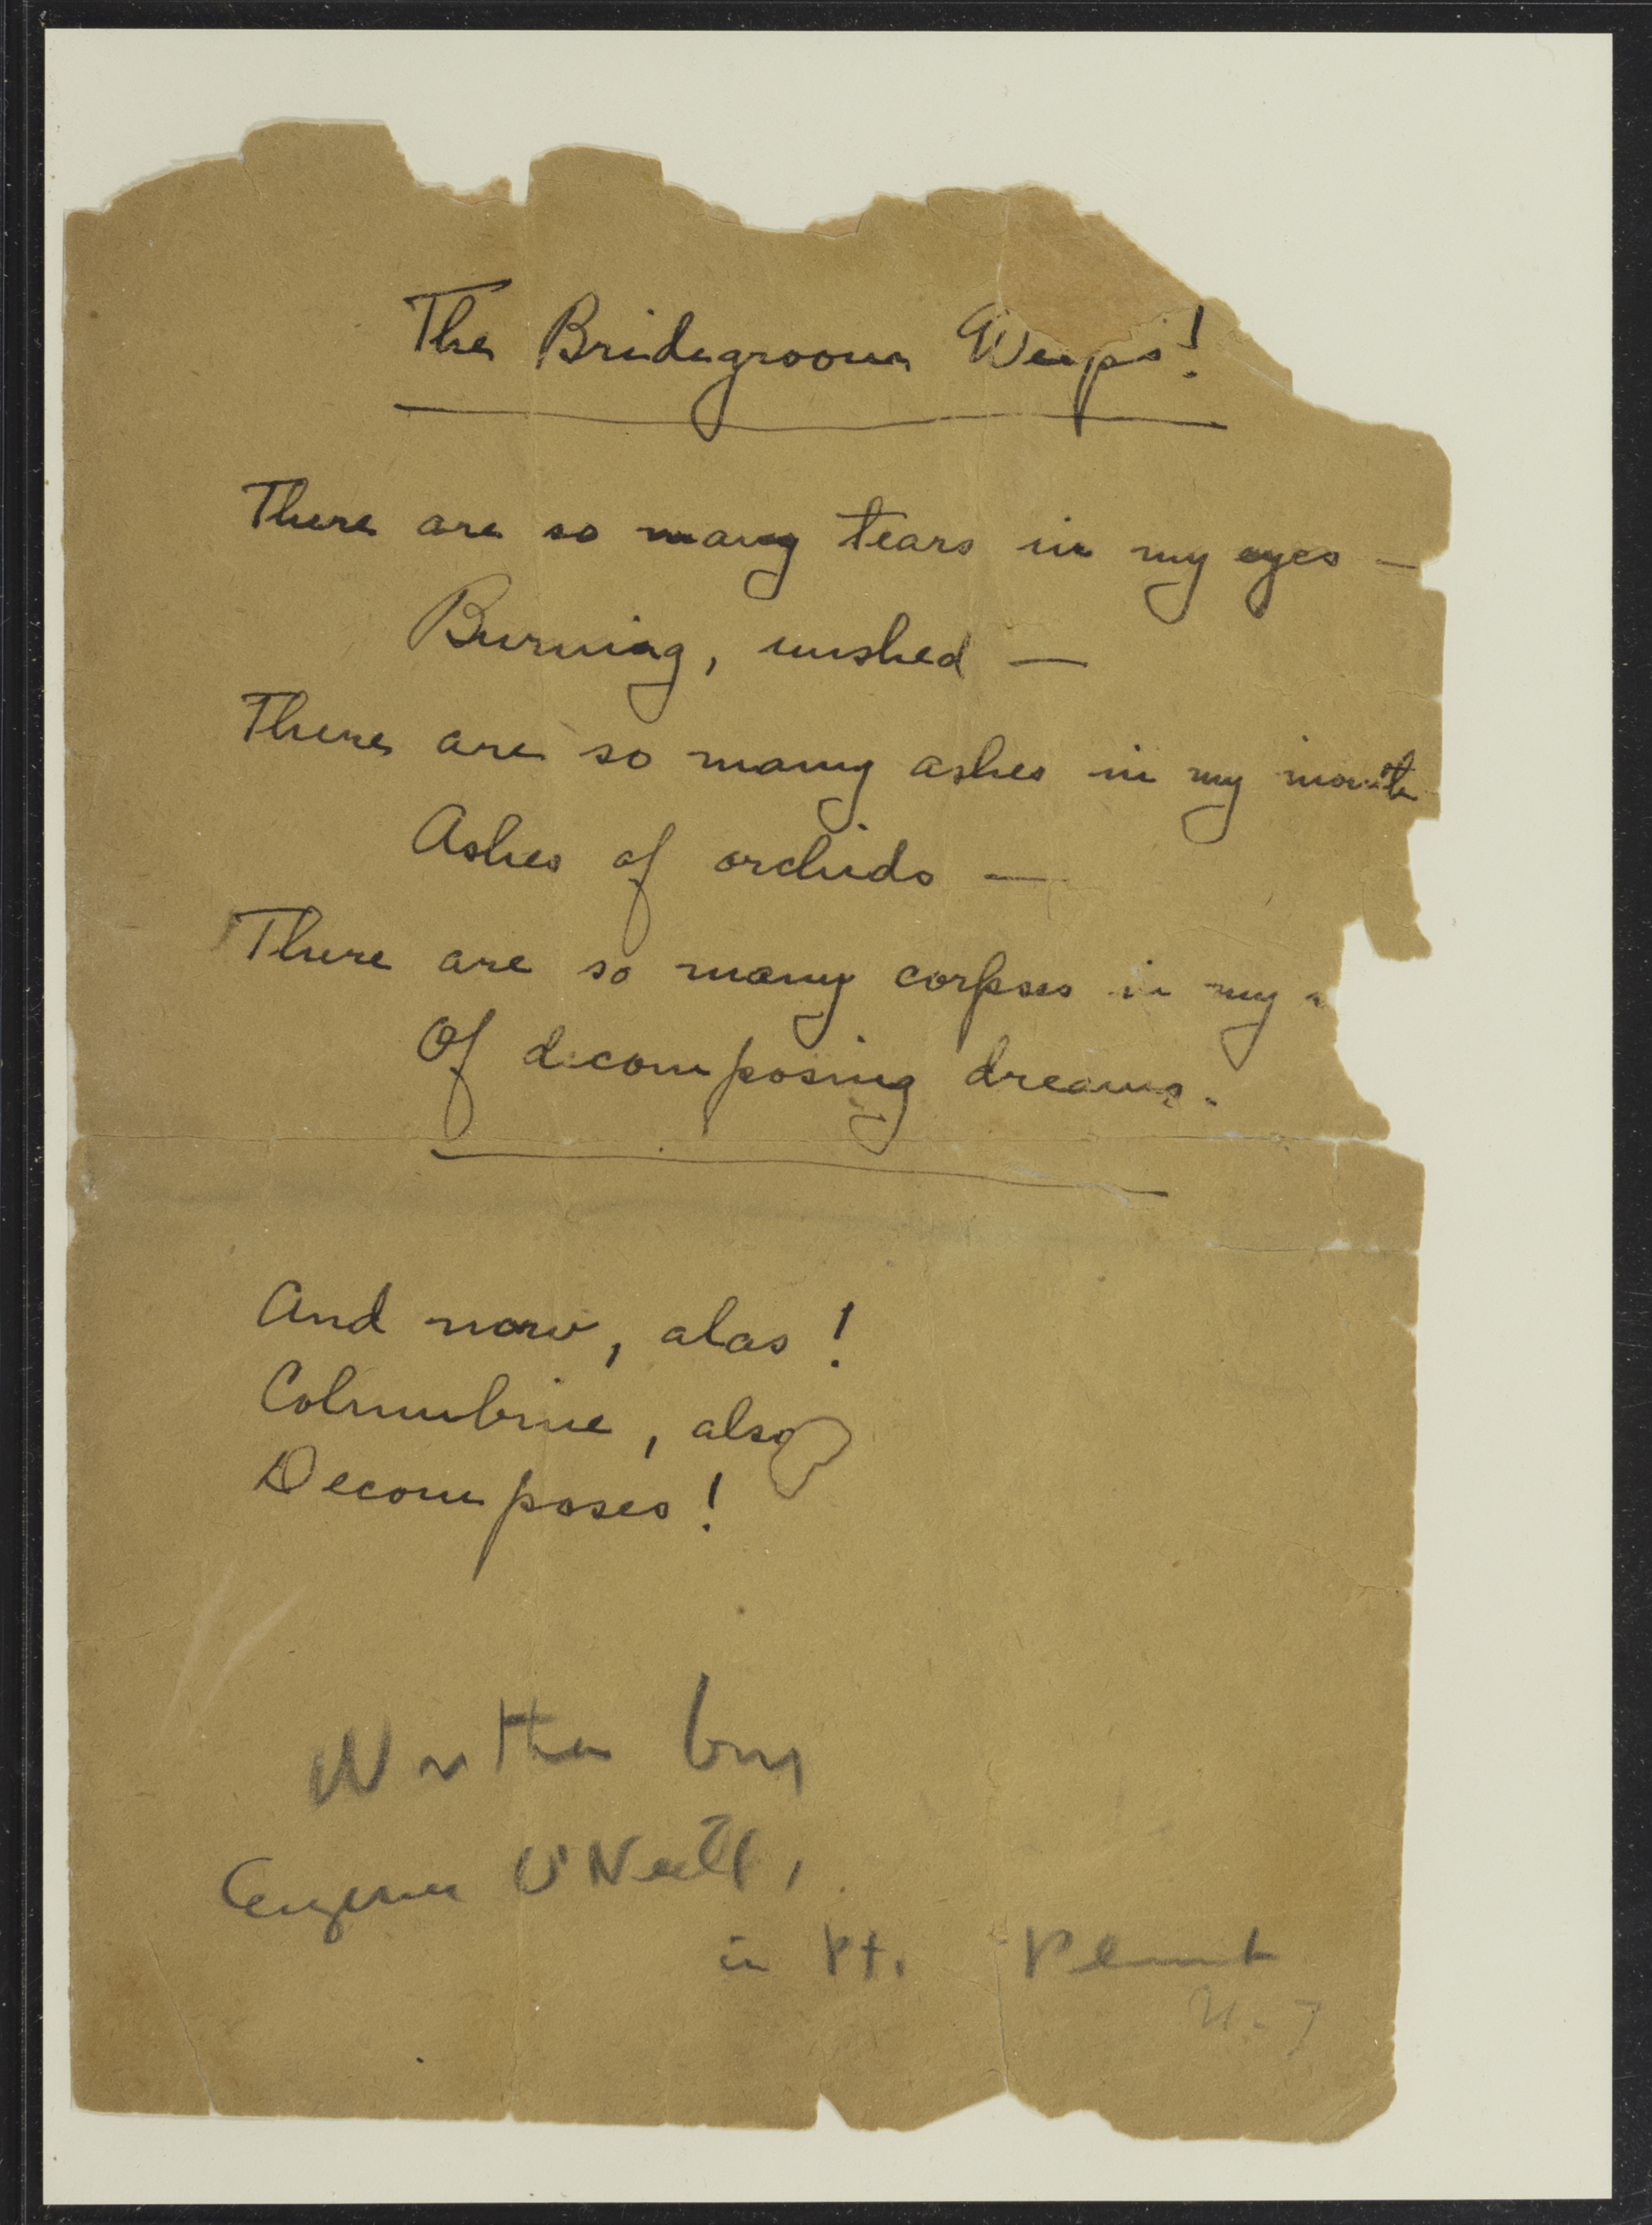 The Bridegroom Weeps!
There are so many tears in my eyes —
Burning, unshed —
There are so many ashes in my mouth
Ashes of orchids —
There are so many corpses in my
Of decomposing dreams.
And now, alas!
Columbine, also
Decomposes!
Written by
Eugene O'Neill,
in Pt. Pleasant
N.J